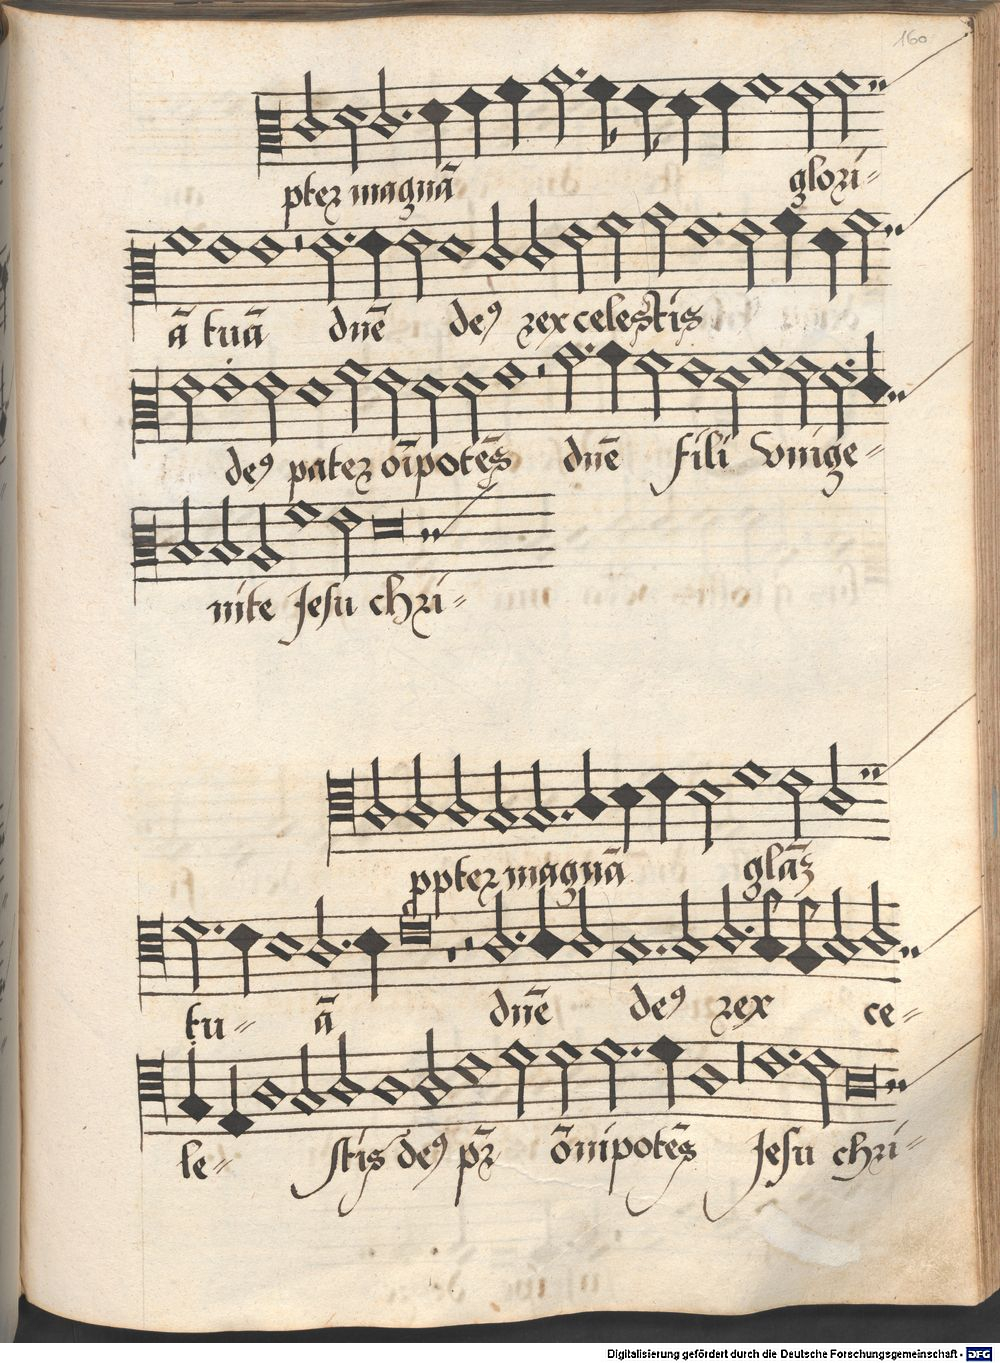 160
pter magnā glori-
ā tuā dn̄e deꝰ rex celestis
deꝰ pater oīpotēs dn̄e fili vnige-
nite Jesu chri-
ppter magnā glāꝫ
tu- ā dn̄e deꝰ rex ce-
le- stis deꝰ pr̄ ōnipotēs Jesu chri-
Digitalisierung gefördert durch die Deutsche Forschungsgemeinschaft - DFG